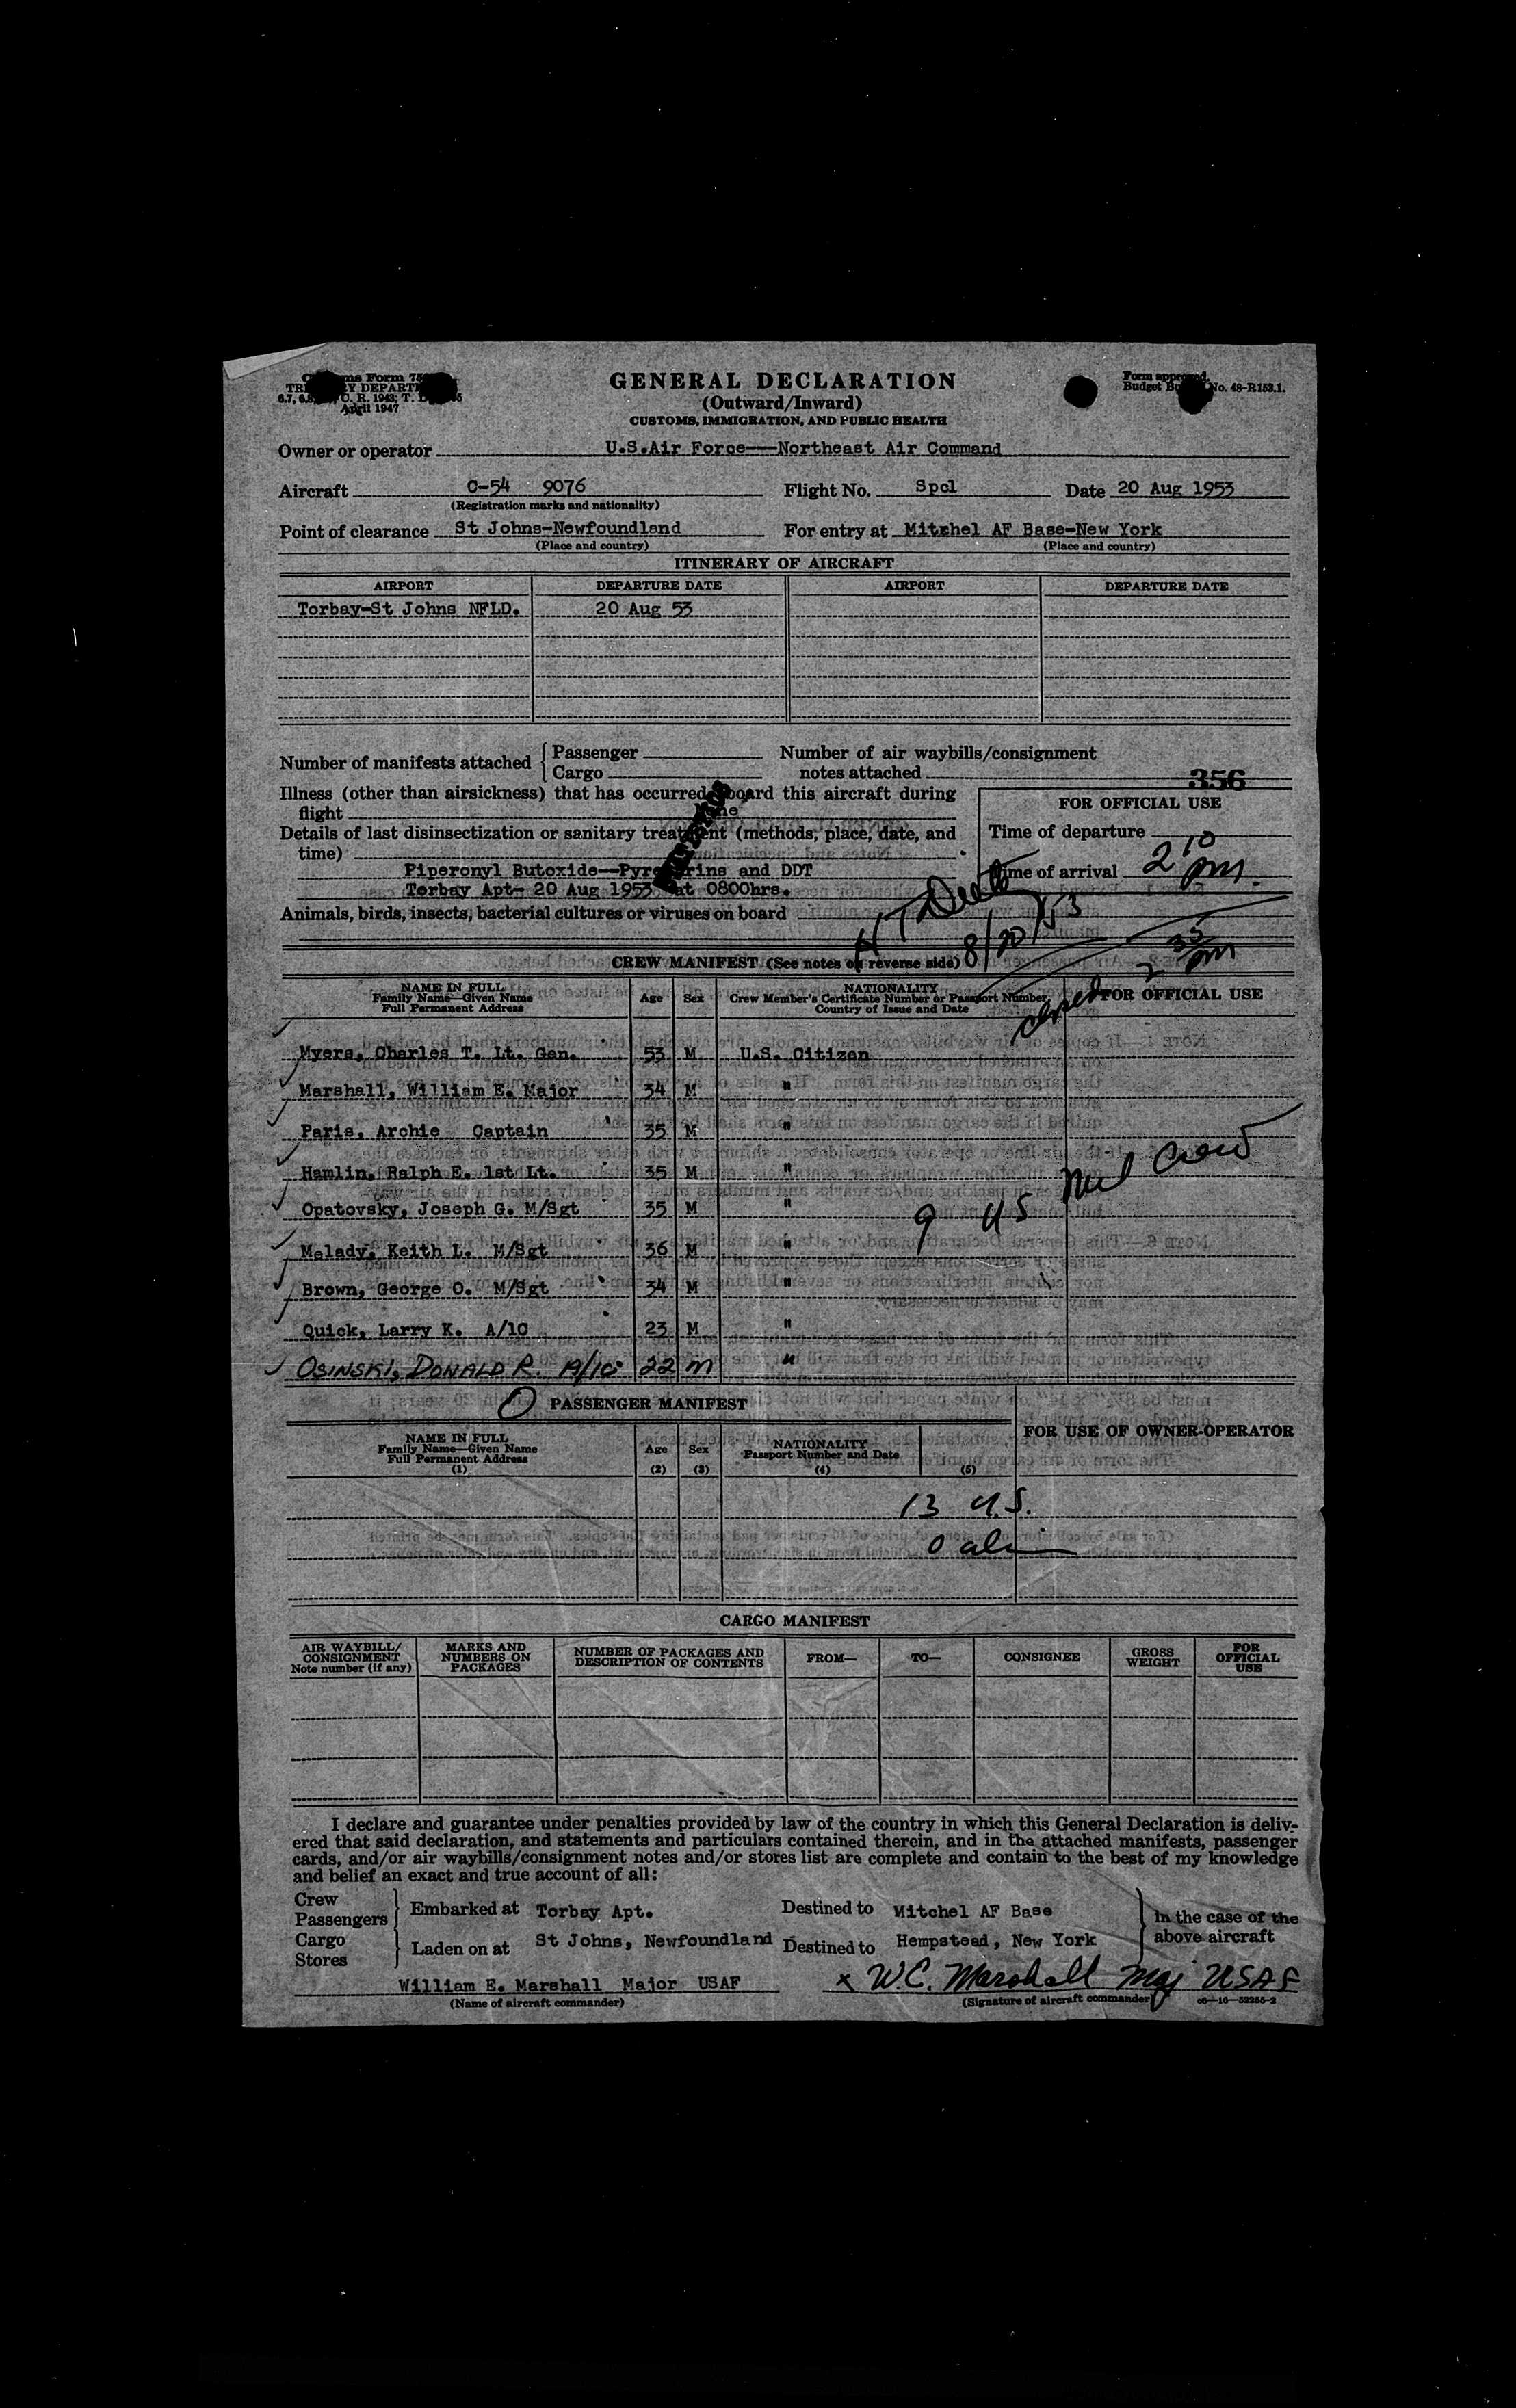 GENERAL DECLARATION
(Outward/Inward)
CUSTOMS, IMMIGRATION, AND PUBLIC HEALTH
April 1947
Form approved.
No. 48-R153.1.
Owner or operator U.S.Air Force---Northeast Air Command
Aircraft C-54 9076 Flight No. Spcl Date 20 Aug 1953
(Registration marks and nationality)
Point of clearance St Johns-Newfoundland For entry at Mitchel AF Base-New York
(Place and country) (Place and country)
ITINERARY OF AIRCRAFT
AIRPORT DEPARTURE DATE AIRPORT DEPARTURE DATE
Torbay-St Johns NFLD. 20 Aug 53
Number of manifests attached Passenger Number of air waybills/consignment
Cargo notes attached
356
Illness (other than airsickness) that has occurred aboard this aircraft during
flight None
FOR OFFICIAL USE
Details of last disinsectization or sanitary treatment (methods, place, date, and
time)
Time of departure
Piperonyl Butoxide--Pyrethrins and DDT
Time of arrival 2 10 pm.
Torbay Apt- 20 Aug 1953 at 0800hrs.
Animals, birds, insects, bacterial cultures or viruses on board
8/20/53
2 35 pm
CREW MANIFEST (See notes on reverse side)
NAME IN FULL
Family Name—Given Name
Full Permanent Address
Age Sex
NATIONALITY
Crew Member's Certificate Number or Passport Number
Country of Issue and Date
FOR OFFICIAL USE
Myers, Charles T. Lt. Gen. 53 M U.S. Citizen
Marshall, William E. Major 34 M "
Paris, Archie Captain 35 M "
Hamlin, Ralph E. 1st Lt. 35 M "
Opatovsky, Joseph G. M/Sgt 35 M "
Malady, Keith L. M/Sgt 36 M "
Brown, George O. M/Sgt 34 M "
Quick, Larry K. A/1C 23 M "
OSINSKI, DONALD R. A/1C 22 M "
9 US Mil Crew
0 PASSENGER MANIFEST
NAME IN FULL
Family Name—Given Name
Full Permanent Address
(1)
Age
(2)
Sex
(3)
NATIONALITY
Passport Number and Date
(4) (5)
FOR USE OF OWNER-OPERATOR
13 U.S.
0 ali
CARGO MANIFEST
AIR WAYBILL/
CONSIGNMENT
Note number (if any)
MARKS AND
NUMBERS ON
PACKAGES
NUMBER OF PACKAGES AND
DESCRIPTION OF CONTENTS
FROM— TO— CONSIGNEE
GROSS
WEIGHT
FOR
OFFICIAL
USE
I declare and guarantee under penalties provided by law of the country in which this General Declaration is deliv-
ered that said declaration, and statements and particulars contained therein, and in the attached manifests, passenger
cards, and/or air waybills/consignment notes and/or stores list are complete and contain to the best of my knowledge
and belief an exact and true account of all:
Crew
Passengers Embarked at Torbay Apt. Destined to Mitchel AF Base In the case of the
Cargo
Stores Laden on at St Johns, Newfoundland Destined to Hempstead, New York above aircraft
William E. Marshall Major USAF x W.E. Marshall Maj USAF
(Name of aircraft commander) (Signature of aircraft commander)